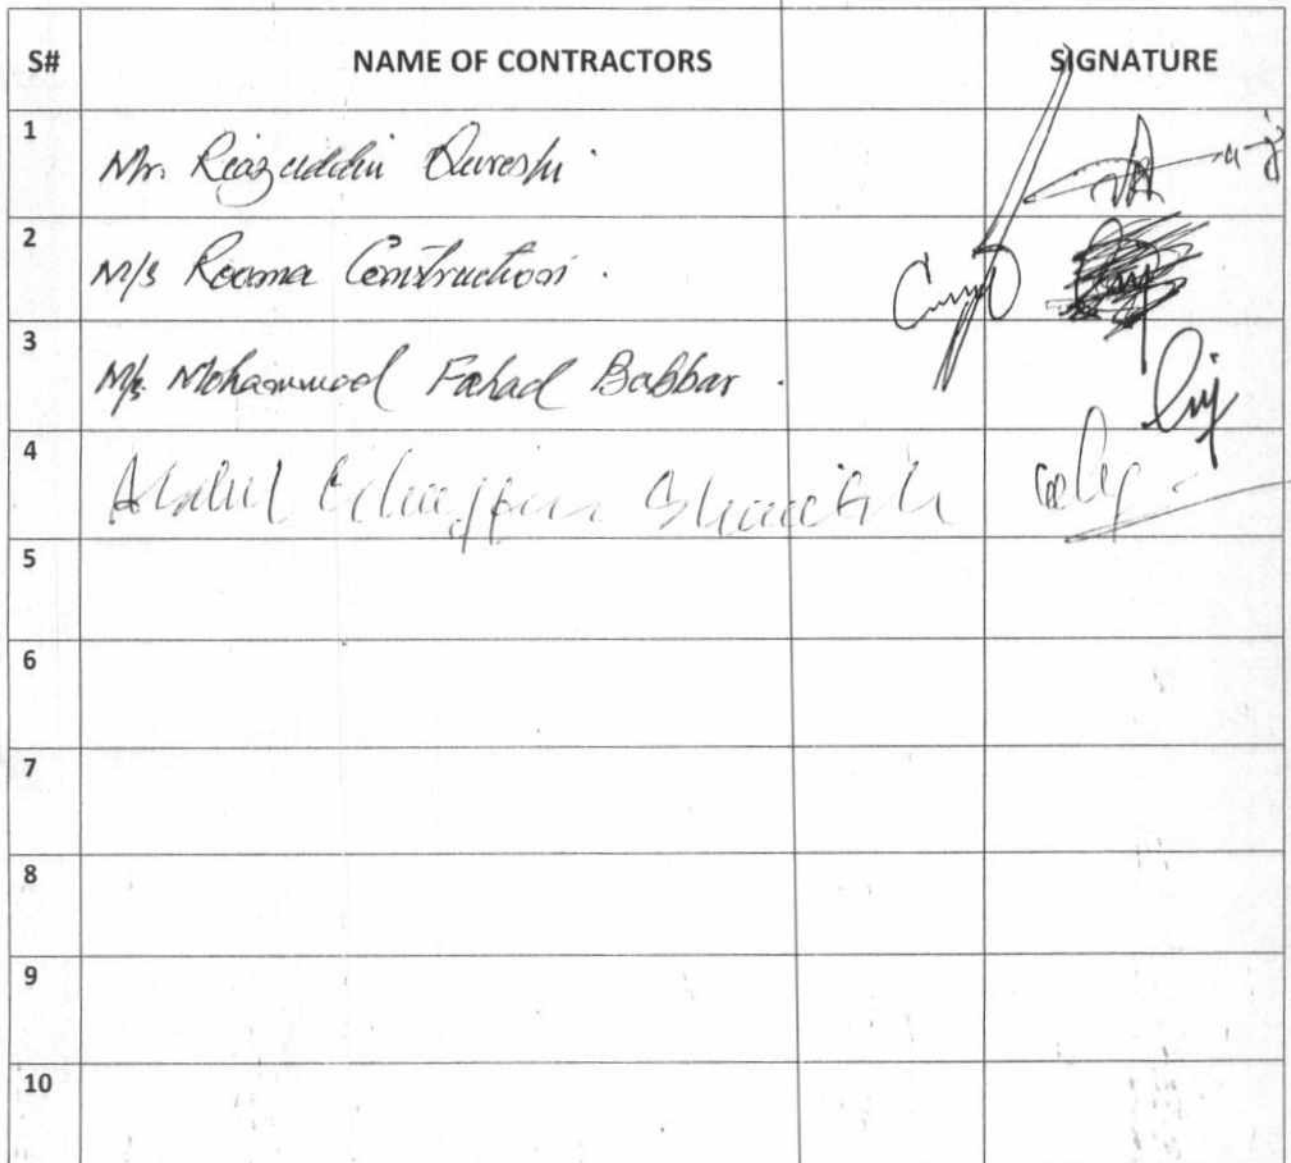 S# NAME OF CONTRACTORS SIGNATURE
1 Mr. Riazuddin Qureshi
2 M/s Rooma Construction
3 M/s Mohammad Fahad Babbar
4 Abdul Ghaffar Shaikh
5
6
7
8
9
10